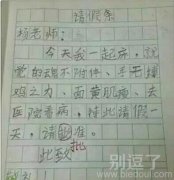 请假条
杨老师：
今天我一起床，就
觉的魂不附体、手无缚
鸡之力、面黄肌瘦、去
医院看病，特此请假一
天，请批准。
此致
敬礼
别逗了
biedoul.com